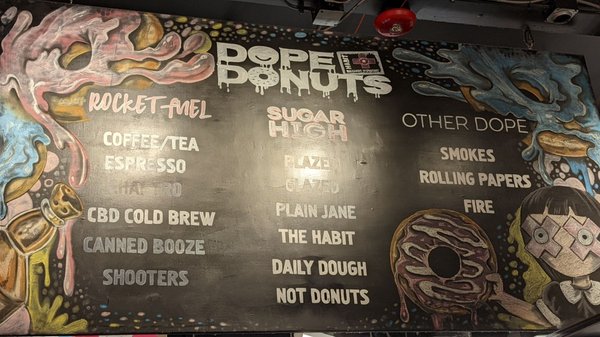 DOPE
DONUTS
ROCKET-FUEL
COFFEE/TEA
ESPRESSO
CBD COLD BREW
CANNED BOOZE
SHOOTERS
SUGAR
HIGH
BLAZED
GLAZED
PLAIN JANE
THE HABIT
DAILY DOUGH
NOT DONUTS
OTHER DOPE
SMOKES
ROLLING PAPERS
FIRE